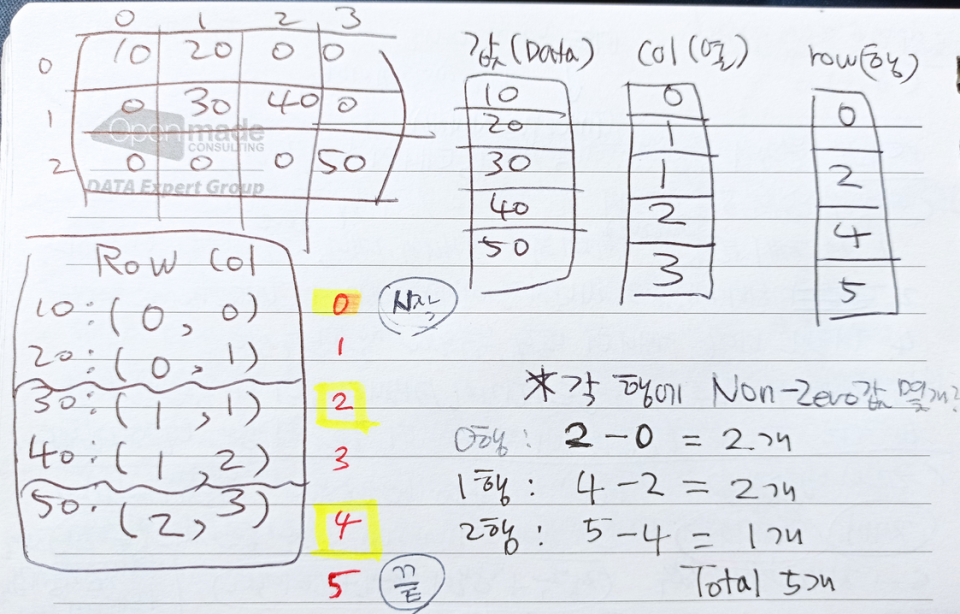 0 1 2 3
0 10 20 0 0
1 0 30 40 0
2 0 0 0 50
Openmade
CONSULTING
DATA Expert Group
값 (Data)
10
20
30
40
50
col (열)
0
1
1
2
3
row(행)
0
2
4
5
Row Col
10:(0, 0)
20:(0, 1)
30:(1, 1)
40:(1, 2)
50:(2, 3)
0 시작
1
2
3
4
5 끝
* 각 행에 Non-Zero값 몇개?
0행: 2-0 = 2개
1행: 4-2 = 2개
2행: 5-4 = 1개
Total 5개